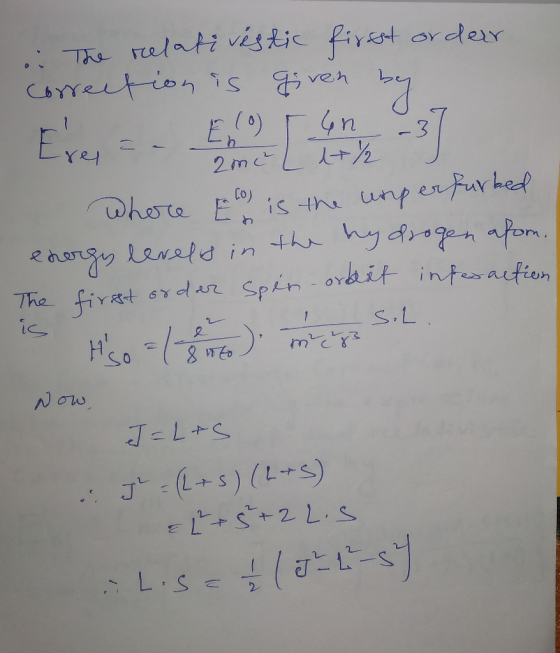 ∴ The relativistic first order
correction is given by
E'rel = - En(0)/2mc² [4n/(l+½) -3]
Where En(0) is the unperturbed
energy levels in the hydrogen atom.
The first order spin-orbit interaction
is
H'so = (e²/8πε0) · 1/m²c²r³ S.L.
Now,
J = L+S
∴ J² = (L+S) (L+S)
= L²+S²+2 L.S
∴ L.S = ½ (J²-L²-S²)